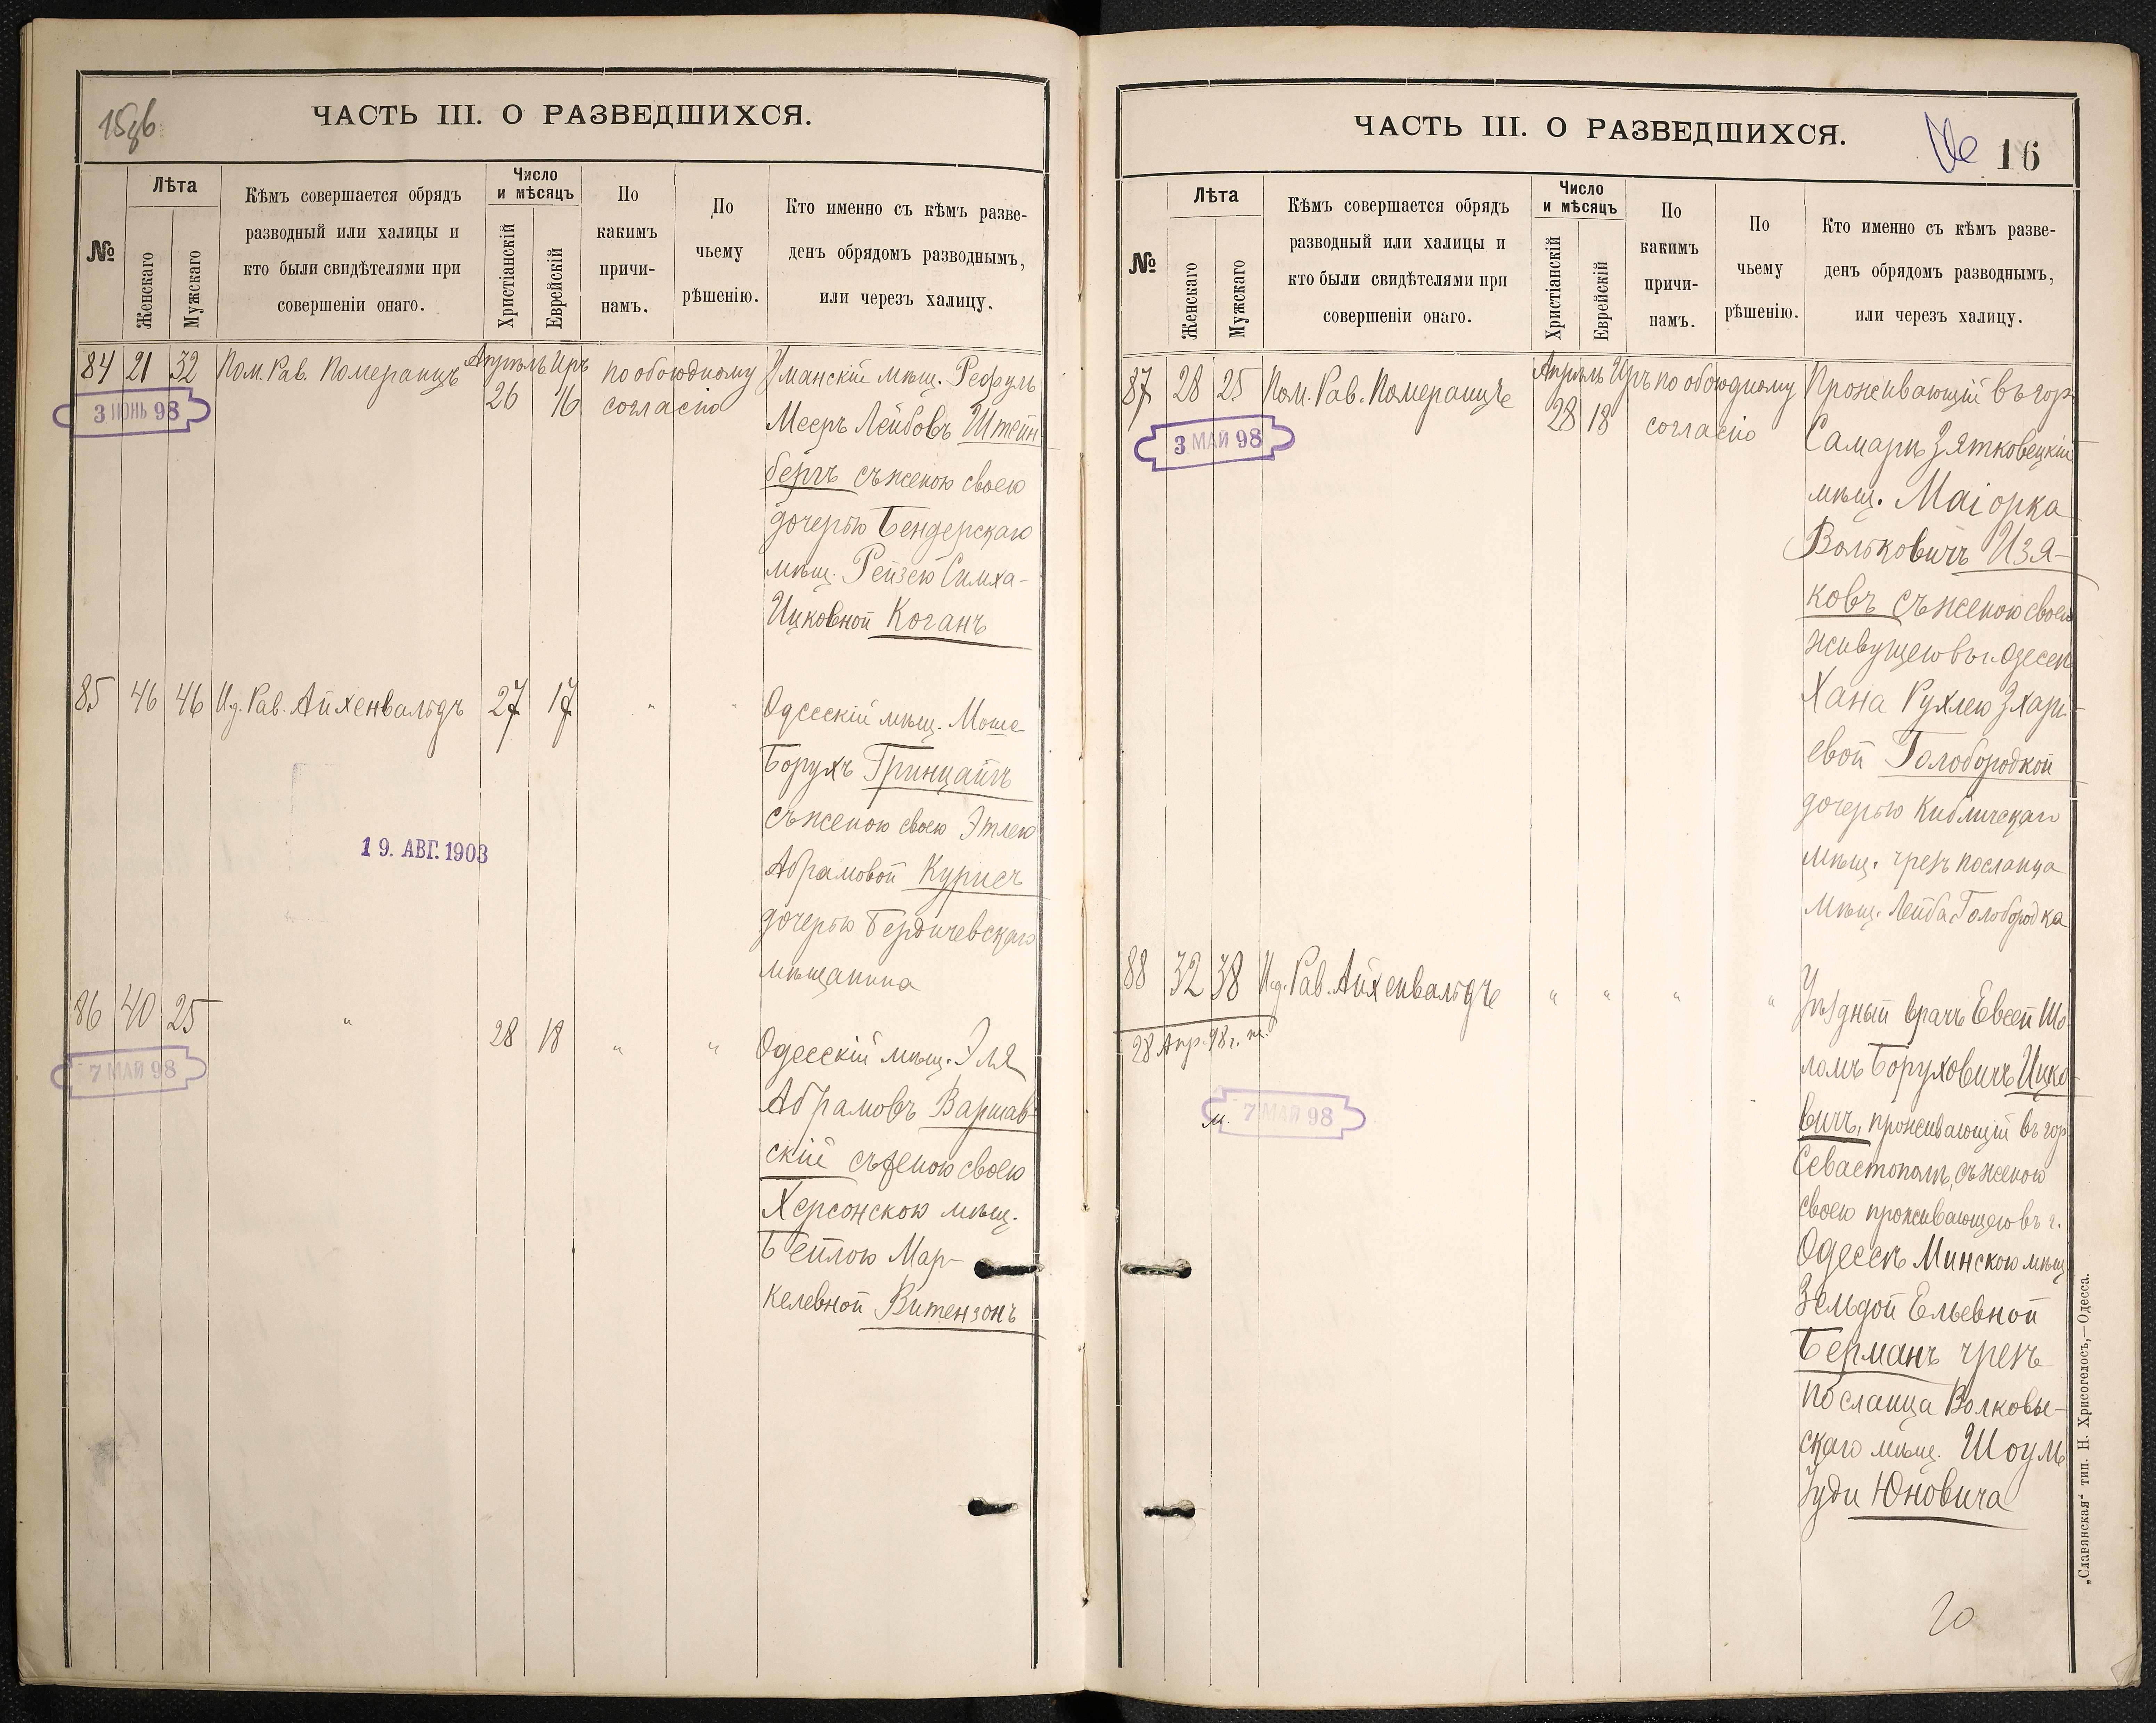 15об
ЧАСТЬ III. О РАЗВЕДШИХСЯ.
№
Лѣта
Женскаго
Мужскаго
Кѣмъ совершается обрядъ
разводный или халицы и
кто были свидѣтелями при
совершеніи онаго.
Число
и мѣсяцъ
Христіанскій
Еврейскій
По
какимъ
причи-
намъ.
По
чьему
рѣшенію.
Кто именно съ кѣмъ разве-
денъ обрядомъ разводнымъ,
или черезъ халицу.
84 21 32 Пом. Рав. Померанцъ Апрѣль Иръ по обоюдному Уманскій мѣщ. Рефуль
26 16 согласію
3 ИЮНЬ 98
Мееръ Лейбовъ Штейн
бергъ съ женою своею
дочерью Бендерскаго
мѣщ. Рейзею Симха-
Ицковной Коганъ
85 46 46 И.д. Рав. Айхенвальдъ 27 17 " " Одесскій мѣщ. Моше
Борухъ Гринцайгъ
съ женою своею Этлею
19. АВГ. 1903
Абрамовой Курисъ
дочерью Бердичевскаго
мѣщанина
86 40 25 " 28 18 " " Одесскій мѣщ. Эля
7 МАЙ 98
Абрамовъ Варшав-
скій съ женою своею
Херсонскою мѣщ.
Бейлою Мар-
келевной Витензонъ
ЧАСТЬ III. О РАЗВЕДШИХСЯ.
16
№
Лѣта
Женскаго
Мужскаго
Кѣмъ совершается обрядъ
разводный или халицы и
кто были свидѣтелями при
совершеніи онаго.
Число
и мѣсяцъ
Христіанскій
Еврейскій
По
какимъ
причи-
намъ.
По
чьему
рѣшенію.
Кто именно съ кѣмъ разве-
денъ обрядомъ разводнымъ,
или черезъ халицу.
87 28 25 Пом. Рав. Померанцъ Апрѣль Иръ по обоюдному Проживающій въ гор.
28 18 согласію
3 МАЙ 98
Самарѣ Зятковецкій
мѣщ. Маіорка
Вольковичъ Изя-
ковъ съ женою своею
живущею въ г. Одессѣ
Хана Рухлею Зхарі-
евой Голобородкой
дочерью Кибличскаго
мѣщ. чрезъ посланца
мѣщ. Лейба Голобородка
88 32 38 И.д. Рав. Айхенвальдъ " " " " Уѣздный врачъ Евсей Шо-
28 Апр. 98 г. ж.
ломъ Боруховичъ Ицко-
м.
7 МАЙ 98
вичъ, проживающій въ гор.
Севастополѣ, съ женою
своею проживающею въ г.
Одессѣ Минскою мѣщ.
Зельдой Ельевной
Берманъ чрезъ
посланца Волковы-
скаго мѣщ. Шоуль
Іуди Юновича
„Славянская“ тип. Н. Хрисогелосъ,—Одесса.
20